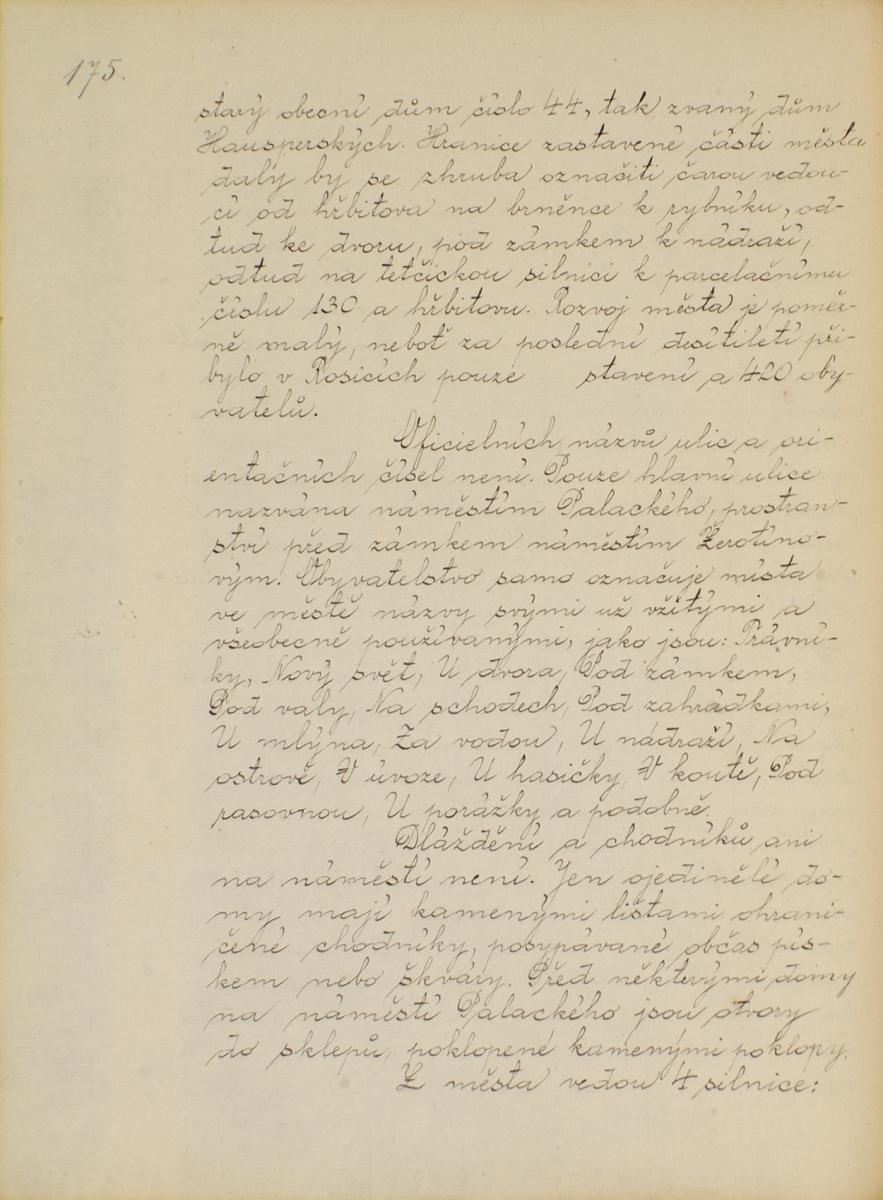 175.
starý obecní dům číslo 44, tak zvaný dům
Hausperských. Hranice zastavené části města
daly by se zhruba označiti čarou vedou-
cí od hřbitova na brněnce k rybníku, od-
tud ke dvoru, pod zámkem k nádraží,
odtud na tetčickou silnici k parcelačnímu
číslu 130 a hřbitovu. Rozvoj města je poměr-
ně malý, neboť za poslední desítiletí při-
bylo v Rosicích pouze stavení a 420 oby-
vatelů.
Oficielních názvů ulic a ori-
entačních čísel není. Pouze hlavní ulice
nazvána náměstím Palackého, prostran-
ství před zámkem náměstím Žerotíno-
vým. Obyvatelstvo samo označuje místa
ve městě názvy svými už vžitými a
všeobecně používanými, jako jsou: Trávní-
ky, Nový svět, U dvora, Pod zámkem,
Pod valy, Na schodech, Pod zahrádkami,
U mlýna, Za vodou, U nádraží, Na
ostrově, V úvoze, U hasičky, V koutě, Pod
rasovnou, U porážky a podobně.
Dláždění a chodníků ani
na náměstí není. Jen ojedinělé do-
my mají kamenými lištami ohrani-
čené chodníky, posypávané občas pís-
kem nebo škváry. Před některými domy
na náměstí Palackého jsou otvory
do sklepů, poklopené kamenými poklopy.
Z města vedou 4 silnice: